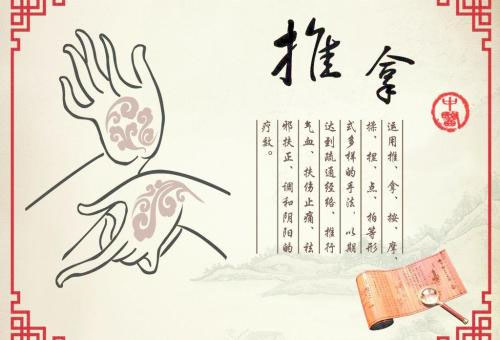 推拿
中醫
运用推、拿、按、摩、
揉、捏、点、拍等形
式多样的手法，以期
达到疏通经络、推行
气血、扶伤止痛、祛
邪扶正、调和阴阳的
疗效。